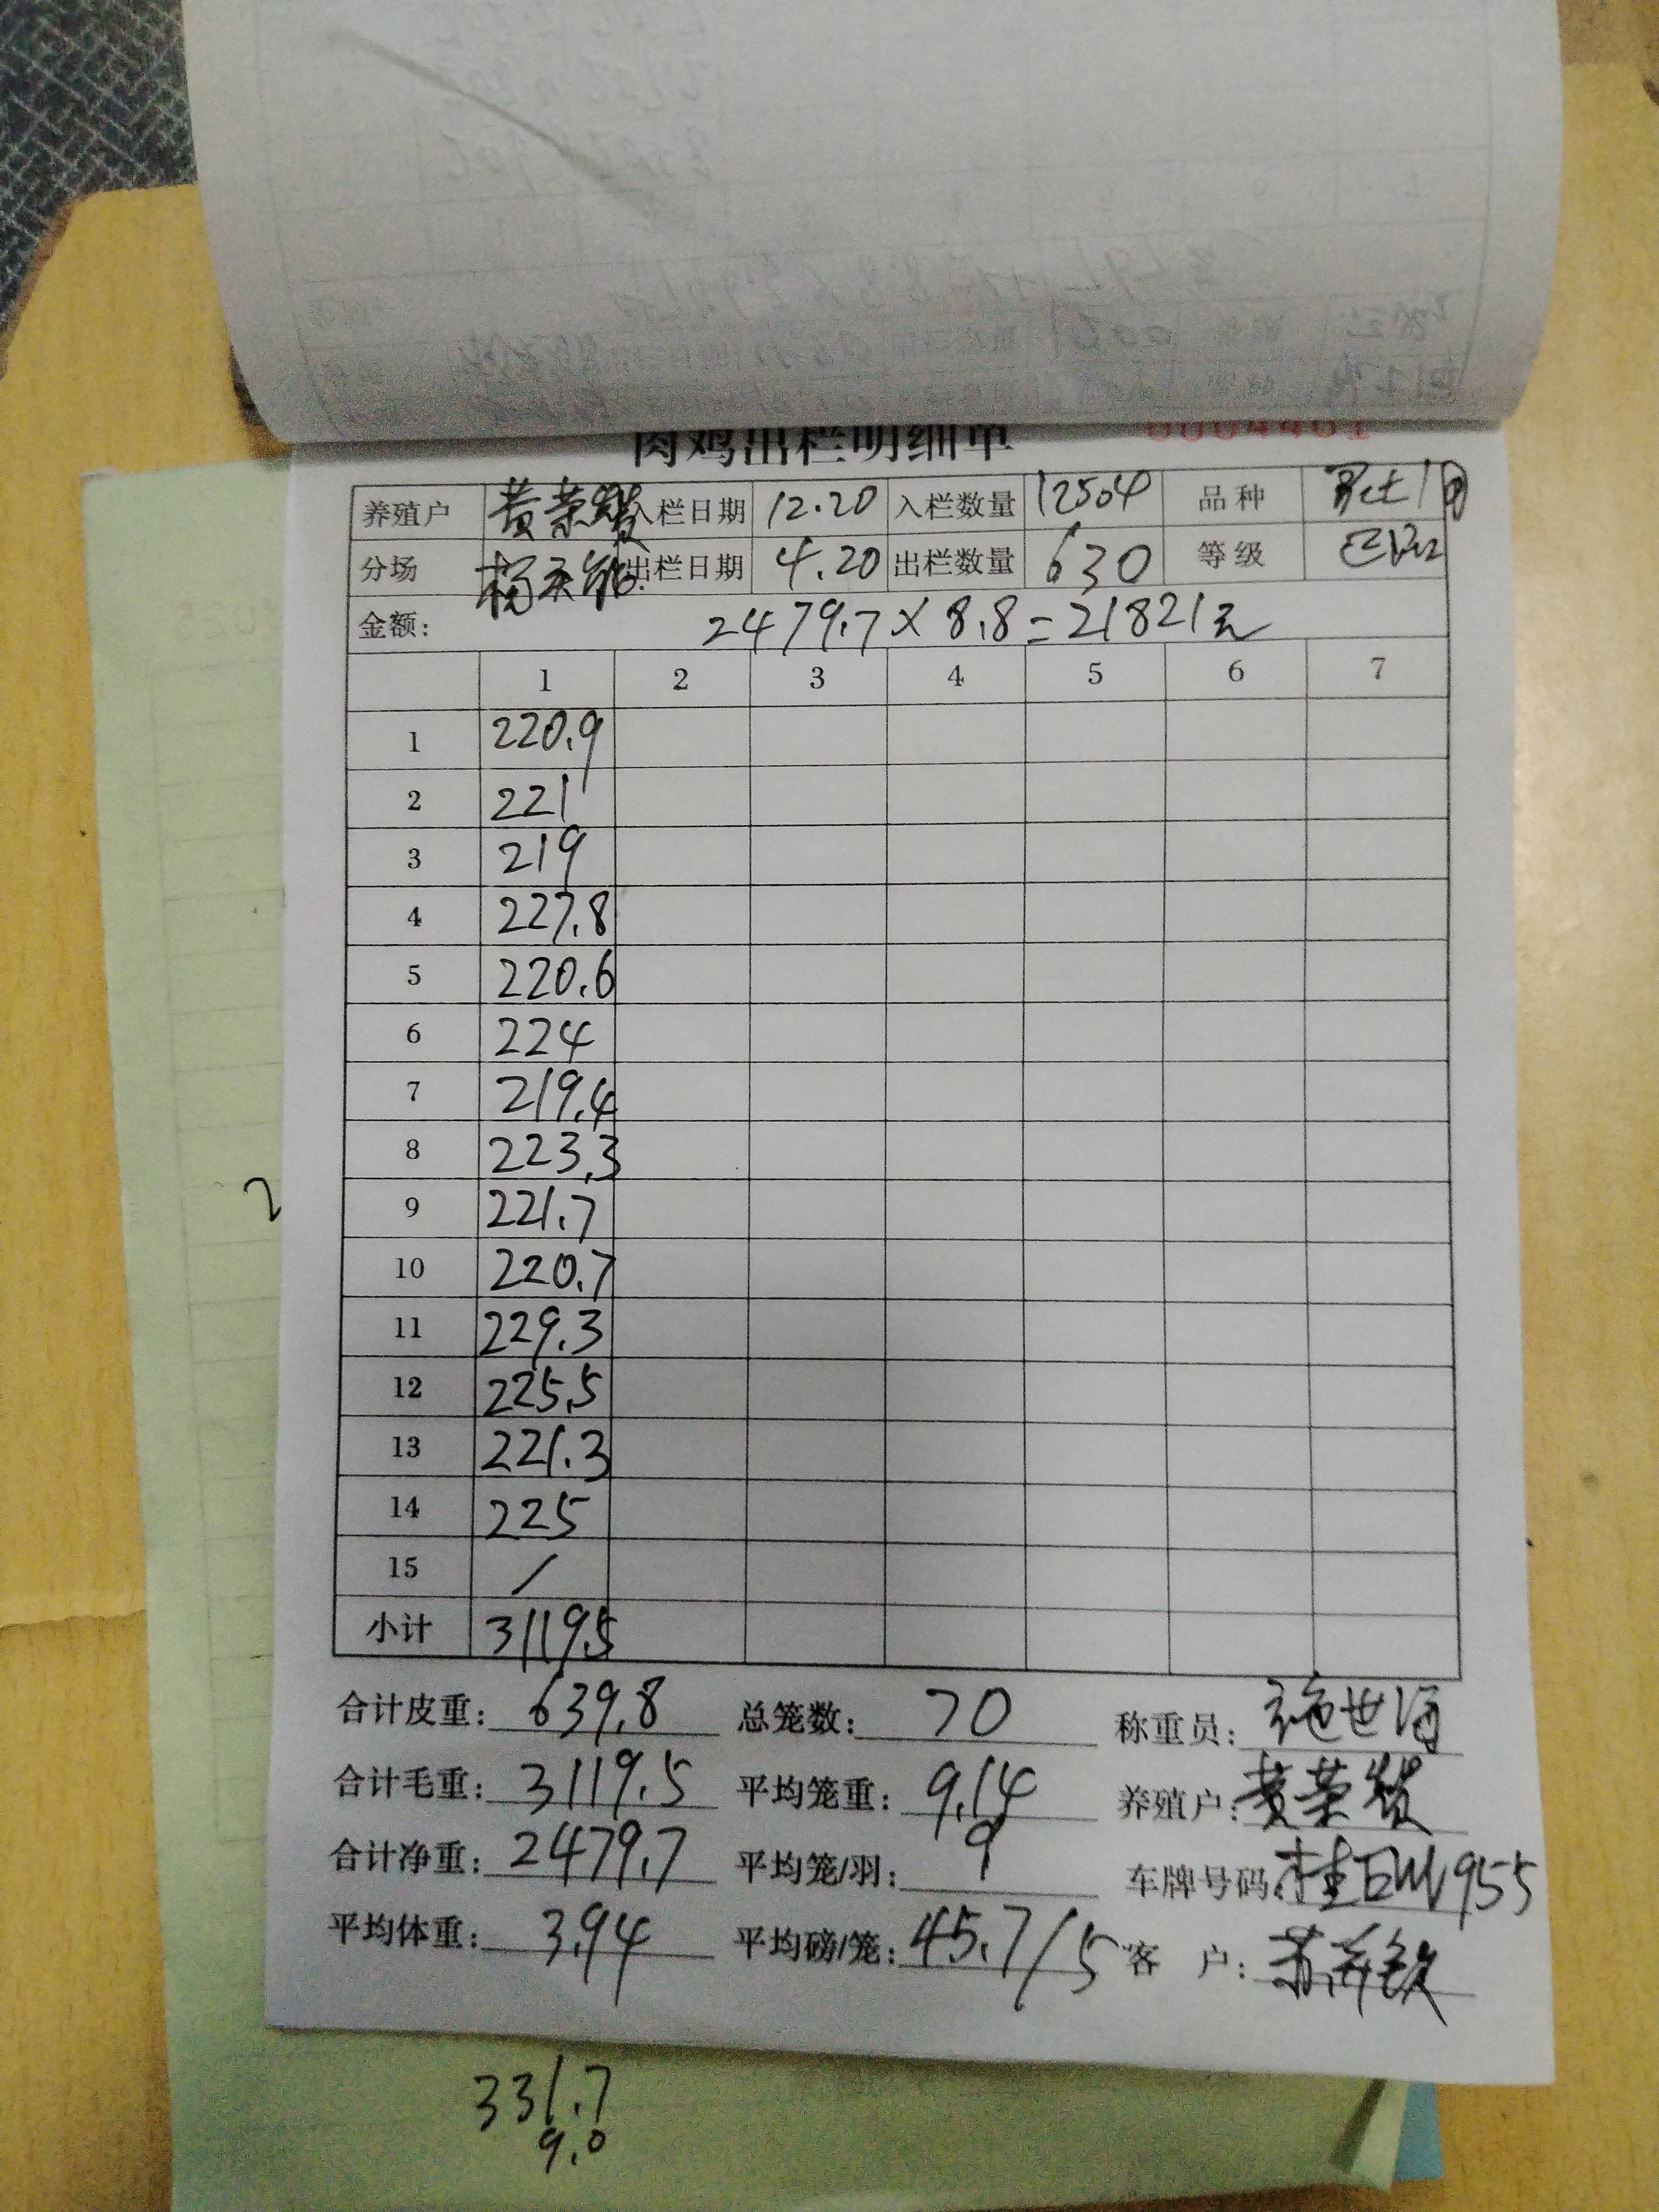 肉鸡出栏明细单 0004461
养殖户 黄荣赞 入栏日期 12.20 入栏数量 12504 品种
分场 杨天能 出栏日期 4.20 出栏数量 630 等级
金额: 2479.7×8.8=21821元
1 2 3 4 5 6 7
1 220.9
2 221
3 219
4 227.8
5 220.6
6 224
7 219.4
8 223.3
9 221.7
10 220.7
11 229.3
12 225.5
13 221.3
14 225
15 /
小计 3119.5
合计皮重: 639.8 总笼数: 70 称重员: 施世海
合计毛重: 3119.5 平均笼重: 9.14 养殖户: 黄荣赞
合计净重: 2479.7 平均笼/羽: 9 车牌号码: 955
平均体重: 3.94 平均磅/笼: 45.7/5 客 户:
2
331.7
9.0